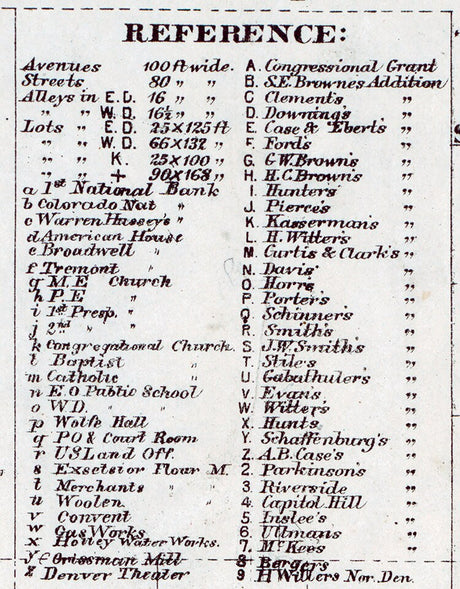 REFERENCE:
Avenues 100 ft wide.
Streets 80 " "
Alleys in E.D. 16 " "
" " W.D. 16½ " "
Lots " E.D. 25×125 ft
" " W.D. 66×132 "
" " K. 25×100 "
" " + 90×168 "
a 1st National Bank
b Colorado Nat "
c Warren Hussey's "
d American House
e Broadwell "
f Tremont "
g M.E. Church
h P.E. "
i 1st Presp. "
j 2nd " "
k Congregational Church.
l Baptist "
m Catholic "
n E.O. Public School
o W.D. " "
p Wolfe Hall
q P O & Court Room
r US Land Off.
s Exselsior Flour M.
t Merchants " "
u Woolen "
v Convent
w Gas Works
x Holley Water Works.
y Crissman Mill
z Denver Theater
A. Congressional Grant
B. S.E. Browne's Addition
C Clement's "
D. Downings' "
E. Case & Ebert's "
F. Ford's "
G. G.W. Brown's "
H. H.C. Brown's "
I. Hunters' "
J. Pierce's "
K. Kasserman's "
L. H. Witter's "
M. Curtis & Clark's "
N. Davis' "
O. Horrs "
P. Porter's "
Q. Schinner's "
R. Smith's "
S. J.W. Smith's "
T. Stile's "
U. Gabathuler's "
V. Evans' "
W. Witter's "
X. Hunts "
Y. Schaffenburg's "
Z. A.B. Case's "
2. Parkinson's "
3. Riverside "
4. Capitol Hill "
5. Inslee's "
6. Ullmans "
7. McKees "
8 Bergers "
9 H Witters Nor. Den.